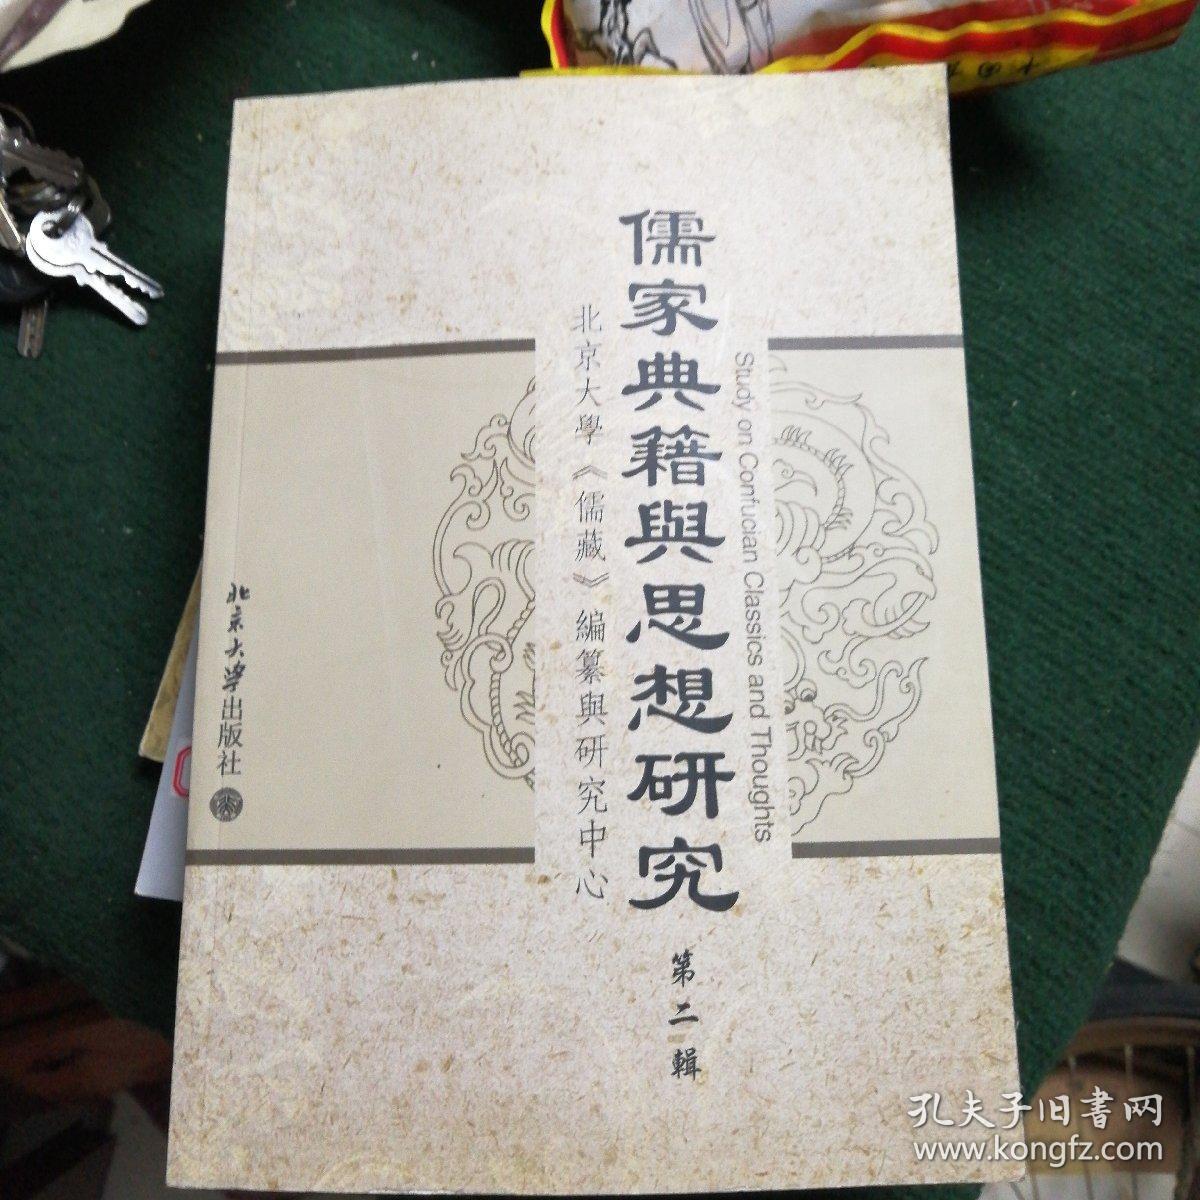 儒家典籍與思想研究
Study on Confucian Classics and Thoughts
北京大學《儒藏》編纂與研究中心
第二輯
北京大学出版社
孔夫子旧書网
www.kongfz.com